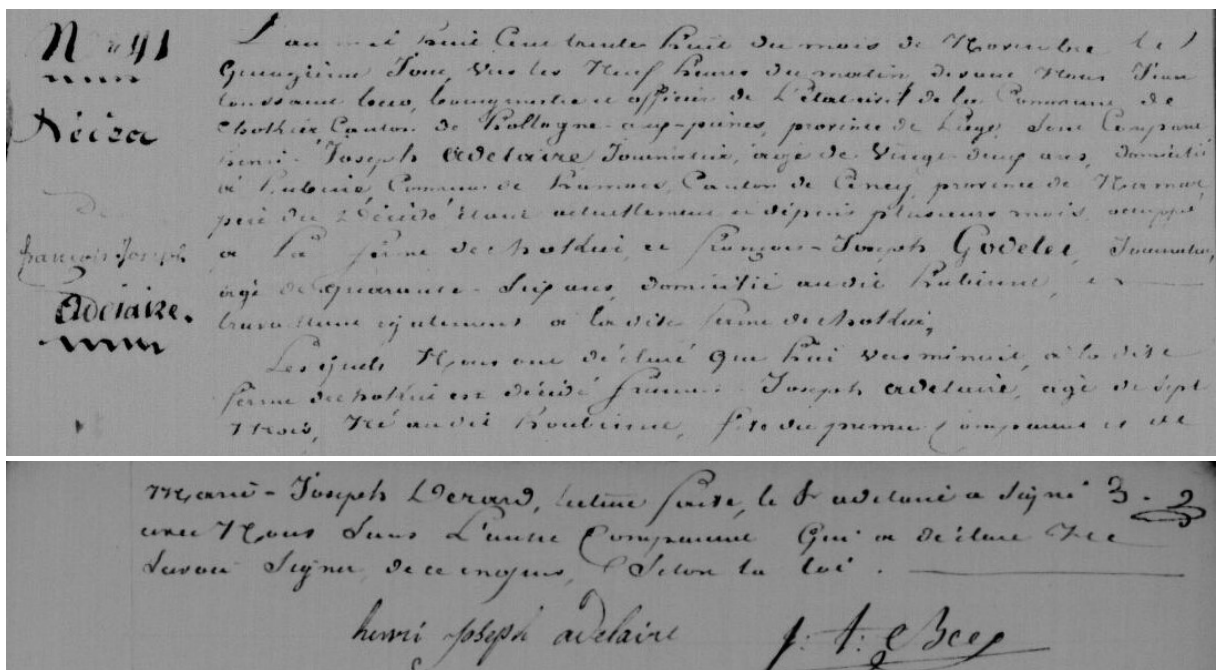 N° 41
Décès
de
françois-Joseph
Adelaire.
L'an mil huit Cent trente huit du mois de Novembre le
Quinzième Jour, vers les Neuf heures du matin, devant Nous Jean
toussaint bourgmestre et officier de L'état civil de la Commune de
Chokier Canton de hollogne-aux-pierres, province de Liège, Sont Comparu
henri-Joseph adelaire Journalier, agé de vingt deux ans, domicilié
à Commune de Canton de Ciney, province de Namur,
père du Décédé étant actuellement et dépuis plusieurs mois, occuppé
a La ferme de et françois-Joseph Godelet, Journalier,
agé de quarante-Six ans, domicilié audit et
travaillant egalement a la dite ferme de
Lesquels Nous ont déclaré Que hier vers minuit, a la dite
ferme de est décédé françois-Joseph adelaire, agé de Sept
Mois, Né audit fils du premier Comparant et de
Marie-Joseph lecture faite, le Sr adelaire a Signé
avec Nous Sans L'autre Comparant Qui a déclaré Ne
Savoir Signer, de ce enquis, Selon la loi.
henri joseph adelaire